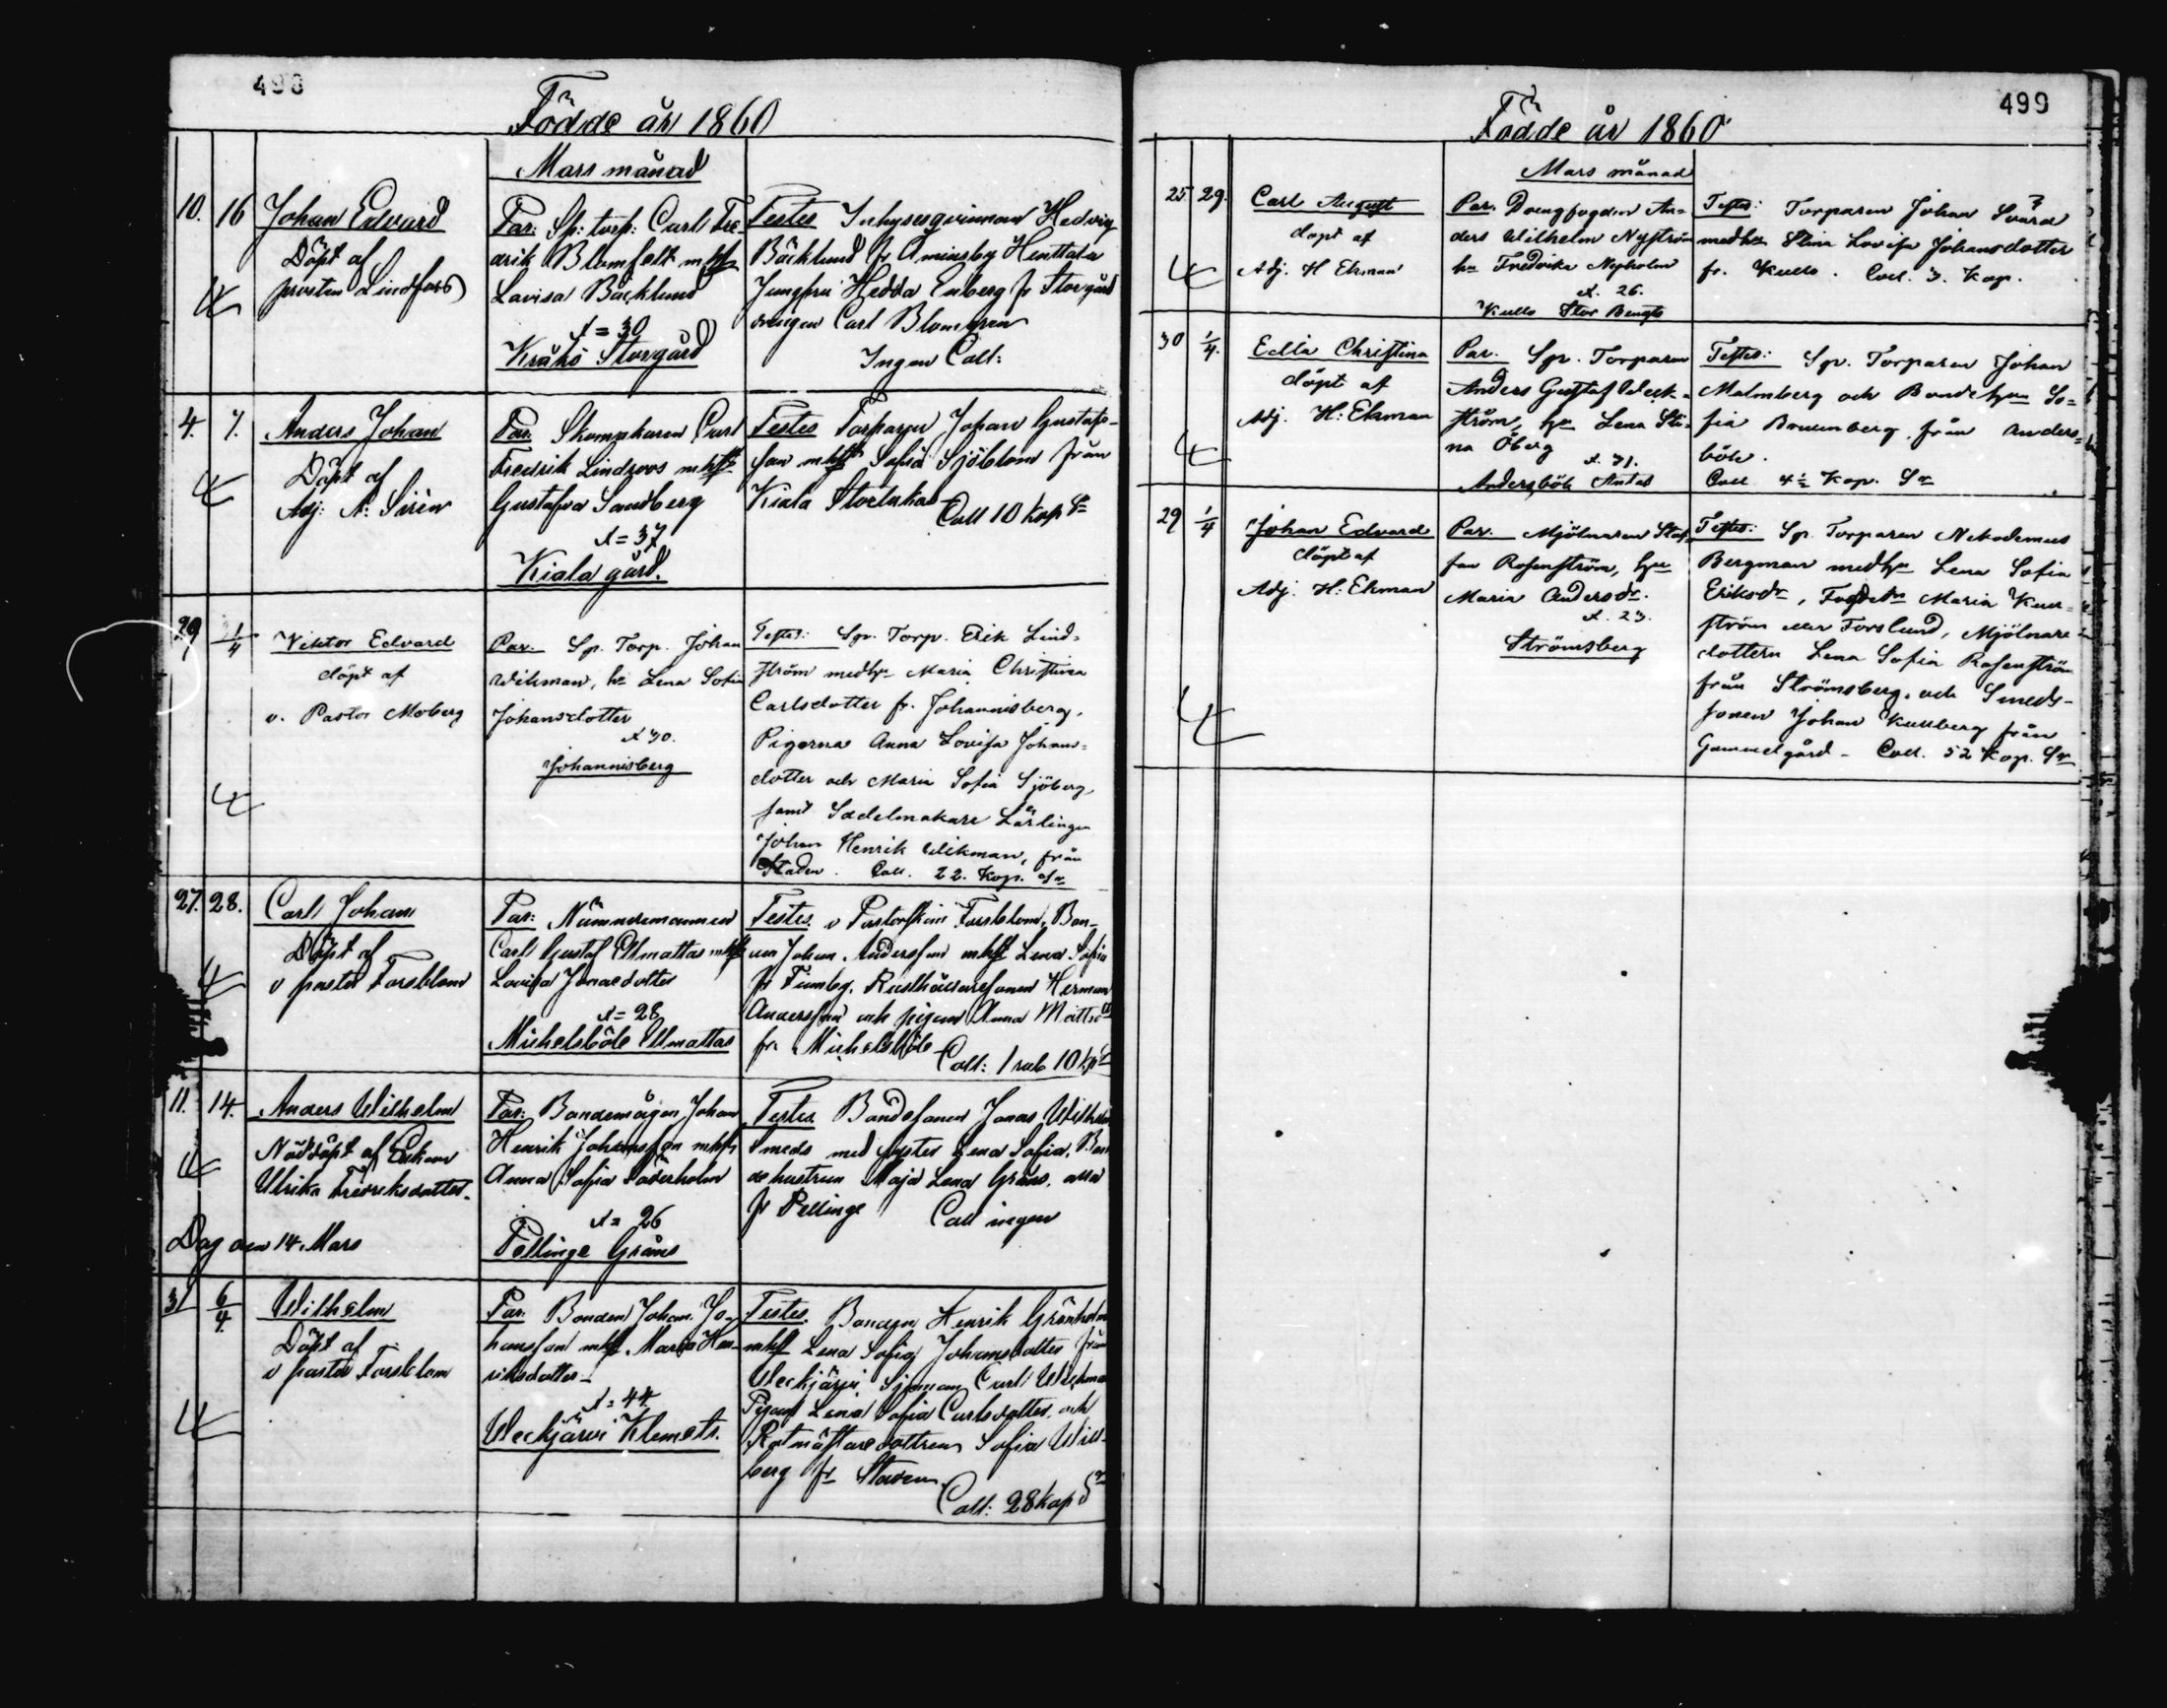 498
Födde år 1860
Mars månad
10. 16 Johan Edvard
Döpt af
prosten Lindfors
Par: Sp: torp: Carl Fre-
drik Blomfelt mhst
Lovisa Bäcklund
A = 30
Kråkö Storgård
Testes Inhysesqvinnan Hedvig
Bäcklund fr Aminsby Henttala
Jungfru Hedda Enberg fr Storgård
drengen Carl Blomgren
Ingen Coll:
4. 7. Anders Johan
Döpt af
Adj: A: Sirén
Par. Skomakaren Carl
Fredrik Lindroos mhst
Gustafva Sandberg
A = 37
Kiala gård.
Testes Torparen Johan Gustafs-
son mhst Sofia Sjöblom från
Kiala
Coll 10 kop Sr
29 1/4 Viktor Edvard
döpt af
v. Pastor Moberg
Par. Sp. Torp. Johan
Wikman, hu Lena Sofia
Johansdotter
A 30.
Johannisberg
Testes: Sp. Torp. Erik Lind-
ström medhu Maria Christina
Carlsdotter fr. Johannisberg,
Pigorna Anna Lovisa Johans-
dotter och Maria Sofia Sjöberg,
samt Sadelmakare Lärlingen
Johan Henrik Wikman, från
Staden. Coll. 22. Kop. Sr
27. 28. Carl Johan
Döpt af
v pastor Forsblom
Par: Nämndemannen
Carl Gustaf Ollmattas mhst
Lovisa Jonaedotter
A = 28
Michelsböle Ollmattas
Testes. v Pastorskan Forsblom, Bon-
den Johan Andersson mhst Lena Sofia
fr Finnby. Rusthållaresonen Herman
Andersson och pigan Anna Mattsdr
fr. Michelsböle
Coll: 1 rub 10 kp Sr
11. 14. Anders Wilhelm
Nöddöpt af Enkan
Ulrika Fredriksdotter.
Dog den 14. Mars
Par: Bondemågen Johan
Henrik Johansson mhst
Anna Sofia Söderholm
A = 26
Pellinge Gräns
Testes. Bondesonen Jonas Wilhelm
Smeds med syster Lena Sofia. Bon-
dehustrun Maja Lena Gräns. alla
fr Pellinge Coll ingen
31 6/4. Wilhelm
Döpt af
v pastor Forsblom
Par. Bonden Johan Jo-
hansson mhst Maria Hen-
riksdotter
A = 44
Weckjärvi Klemets.
Testes. Bonden Henrik Grönholm
mhst Lena Sofia Johansdotter från
Weckjärvi, Sjöman Carl Wickman
Pigan Lena Sofia Carlsdotter, och
Rotmästaredottren Sofia Will-
berg fr Staden
Coll: 28 kop Sr
499
Födde år 1860
Mars månad
25 29. Carl August
döpt af
Adj. H Ekman
Par. Drengfogden An-
ders Wilhelm Nyström
hu Fredrika Nyholm
A. 26.
Kullo Stor Bengts
Testes: Torparen Johan Svärd
medhu Stina Lovisa Johansdotter
fr. Kullo. Coll. 3. Kop.
30 1/4. Edla Christina
döpt af
Adj. H: Ekman
Par. Sp. Torparen
Anders Gustaf Weck-
ström, hu Lena Sti-
na Öberg
A. 31.
Andersböle Antas
Testes: Sp. Torparen Johan
Malmberg och Bondehun So-
fia Brunnberg från Anders-
böle.
Coll 4½ Kop. Sr
29 1/4 Johan Edvard
döpt af
Adj. H: Ekman
Par. Mjölnaren Staf-
fan Rosenström, hu
Maria Andersdr.
A. 23.
Strömsberg
Testes: Sp. Torparen Nikodemus
Bergman medhu Lena Sofia
Eriksdr, Maria
ström eller Forslund, Mjölnare
dottern Lena Sofia Rosenström
från Strömsberg, och Smeds-
sonen Johan Kullberg från
Gammelgård - Coll. 52 Kop. Sr